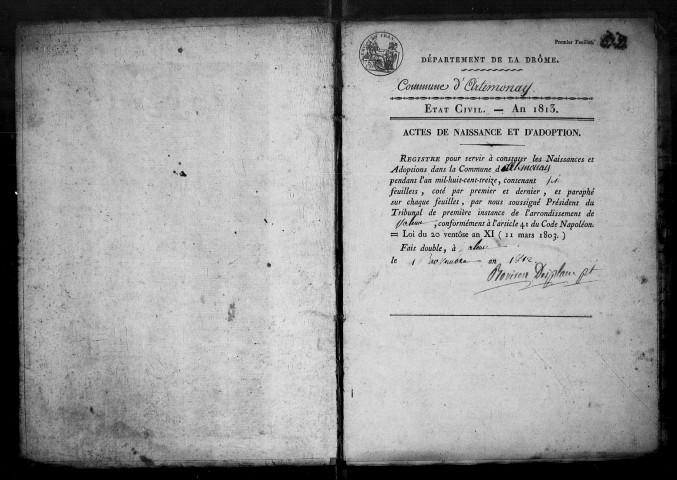 Premier Feuillet.
DÉPARTEMENT DE LA DRÔME.
Commune d'Artemonay
ETAT CIVIL. — AN 1813.
ACTES DE NAISSANCE ET D'ADOPTION.
REGISTRE pour servir à constater les Naissances et
Adoptions dans la Commune d'Artemonay
pendant l'an mil-huit-cent-treize, contenant six
feuillets, coté par premier et dernier, et paraphé
sur chaque feuillet, par nous soussigné Président du
Tribunal de première instance de l'arrondissement de
Valence, conformément à l'article 41 du Code Napoléon.
= Loi du 20 ventôse an XI (11 mars 1803.)
Fait double, à Valence
le 1 novembre an 1812